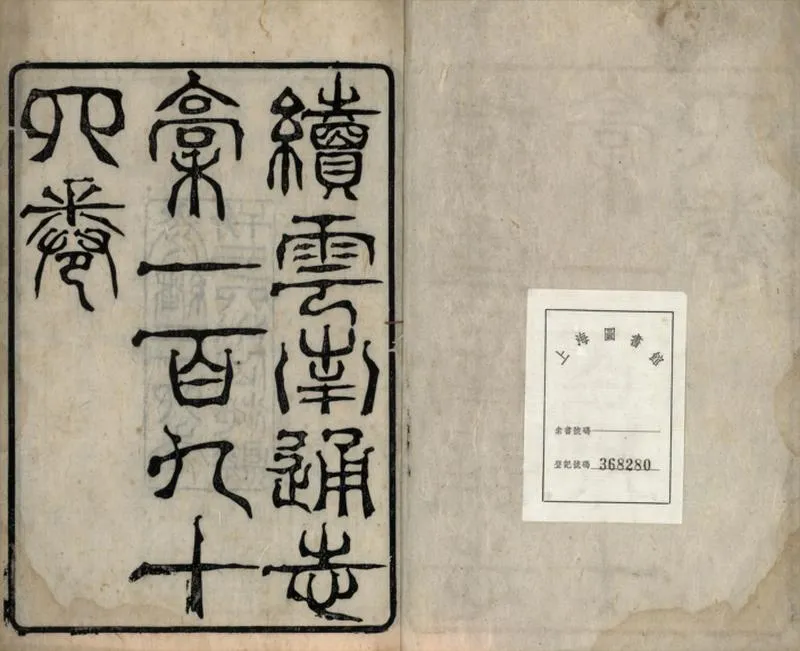 續雲南通志
稾一百九十
四卷
圖書館
索書號碼
登記號碼 368280